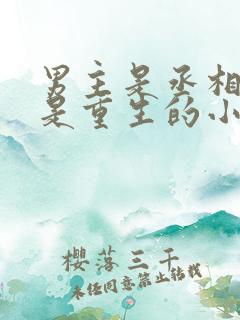 男主是丞相
是重生的小
樱落三千
未经同意禁止转载